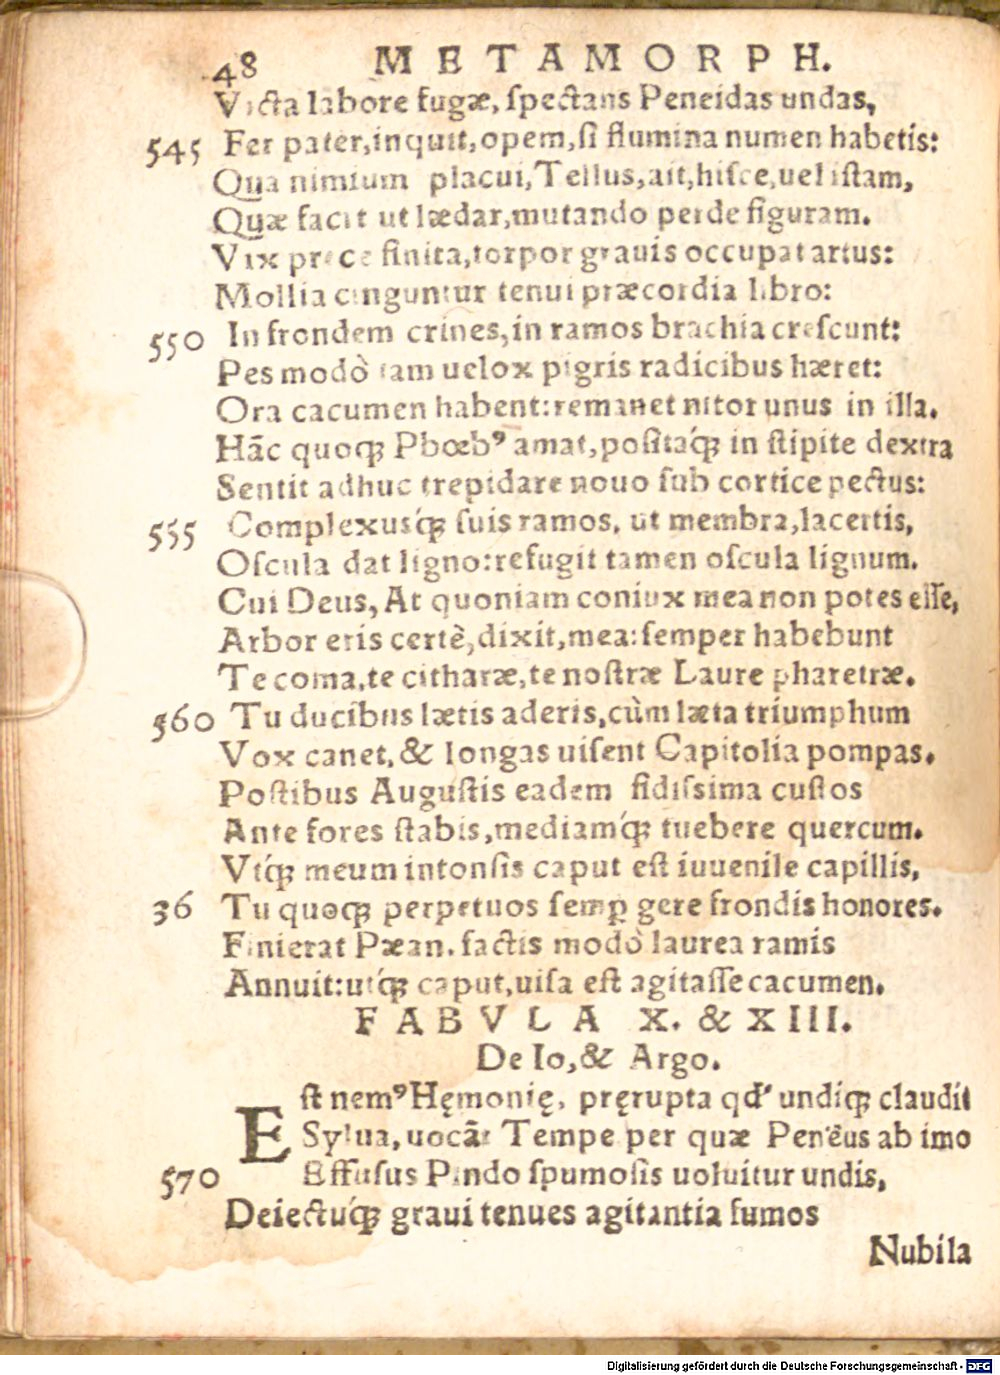 48 METAMORPH.
Victa labore fugæ, spectans Peneidas undas,
545 Fer pater, inquit, opem, si flumina numen habetis:
Qua nimium placui, Tellus, ait, hisce, uel istam,
Quæ facit ut lædar, mutando perde figuram.
Vix prece finita, torpor grauis occupat artus:
Mollia cinguntur tenui præcordia libro:
550 In frondem crines, in ramos brachia crescunt:
Pes modò tam uelox pigris radicibus hæret:
Ora cacumen habent: remanet nitor unus in illa.
Hãc quoqꝫ Phœbꝰ amat, positaq́ꝫ in stipite dextra
Sentit adhuc trepidare nouo sub cortice pectus:
555 Complexusq́ꝫ suis ramos, ut membra, lacertis,
Oscula dat ligno: refugit tamen oscula lignum.
Cui Deus, At quoniam coniux mea non potes esse,
Arbor eris certè, dixit, mea: semper habebunt
Te coma, te citharæ, te nostræ Laure pharetræ.
560 Tu ducibus lætis aderis, cùm læta triumphum
Vox canet, & longas uisent Capitolia pompas.
Postibus Augustis eadem fidissima custos
Ante fores stabis, mediamq́ꝫ tuebere quercum.
Vtq́ꝫ meum intonsis caput est iuuenile capillis,
36 Tu quoqꝫ perpetuos semꝑ gere frondis honores.
Finierat Pæan. factis modò laurea ramis
Annuit: utq́ꝫ caput, uisa est agitasse cacumen.
FABVLA X. & XIII.
De Io, & Argo.
Est nemꝰ Hęmonię, pręrupta qd' undiqꝫ claudit
Sylua, uocãt Tempe per quæ Penëus ab imo
570 Effusus Pindo spumosis uoluitur undis,
Deiectuq́ꝫ graui tenues agitantia fumos
Nubila
Digitalisierung gefördert durch die Deutsche Forschungsgemeinschaft - DFG